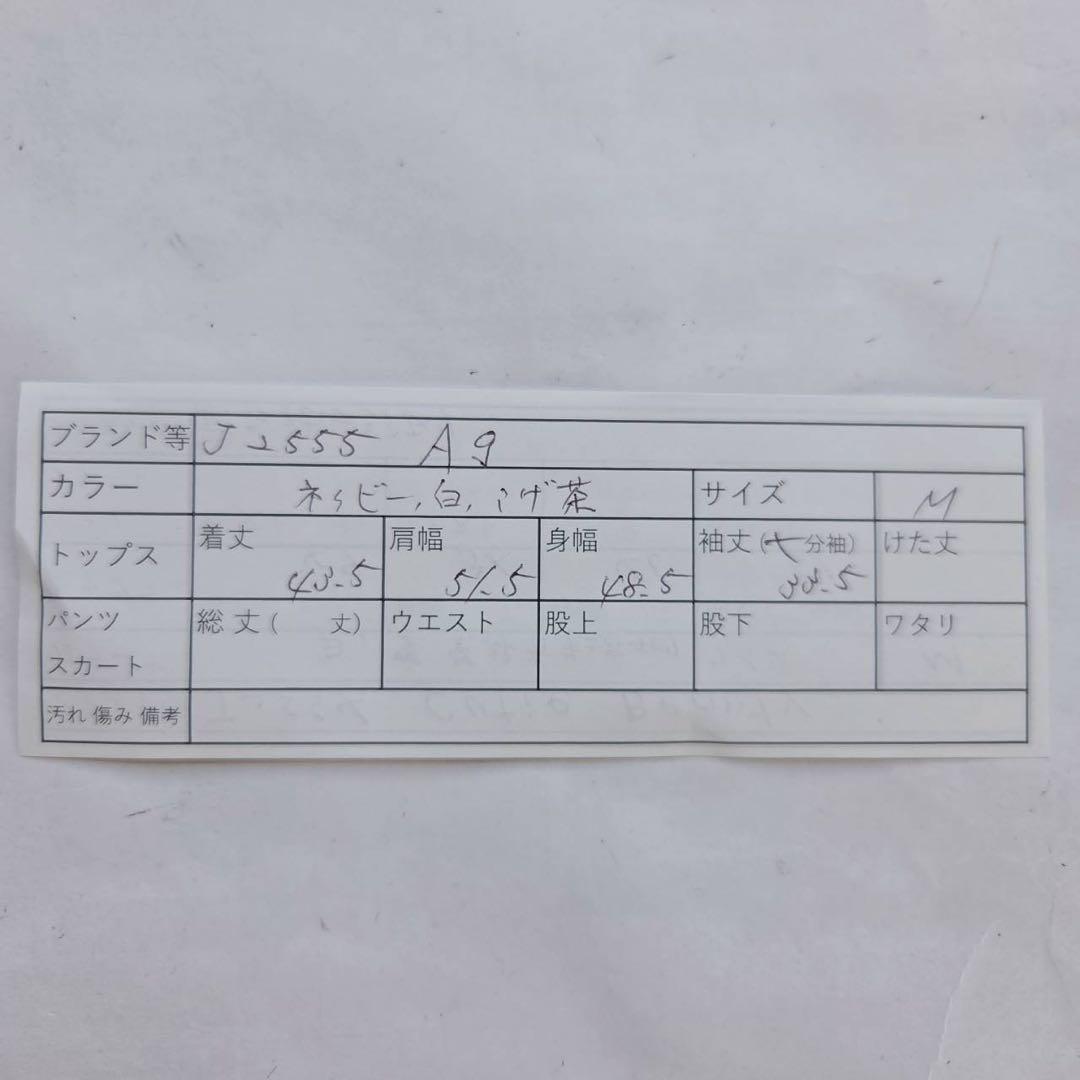 ブランド等 J2555 A9
カラー ネイビー,白,こげ茶 サイズ M
トップス 着丈 43.5 肩幅 51.5 身幅 48.5 袖丈(七分袖) 33.5 けた丈
パンツ スカート 総丈( 丈) ウエスト 股上 股下 ワタリ
汚れ 傷み 備考